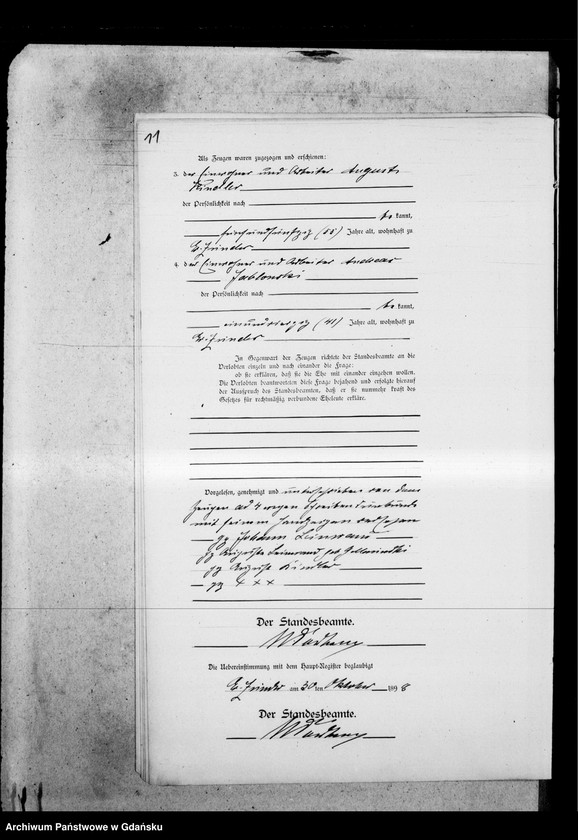 11
Als Zeugen waren zugezogen und erschienen:
3. der Einwohner und Arbeiter August
Kindler
der Persönlichkeit nach
be kannt,
fünfundfünfzig (55) Jahre alt, wohnhaft zu
4. der Einwohner und Arbeiter Andreas
Jablonski
der Persönlichkeit nach
be kannt,
einundvierzig (41) Jahre alt, wohnhaft zu
In Gegenwart der Zeugen richtete der Standesbeamte an die
Verlobten einzeln und nach einander die Frage:
ob sie erklären, daß sie die Ehe mit einander eingehen wollen.
Die Verlobten beantworteten diese Frage bejahend und erfolgte hierauf
der Ausspruch des Standesbeamten, daß er sie nunmehr kraft des
Gesetzes für rechtmäßig verbundene Eheleute erkläre.
Vorgelesen, genehmigt und unterschrieben von dem
Zeugen ad 4 wegen Schreibensunkunde
mit seinem Handzeichen versehen
gez Johann Leinwand
gez Auguste Leinwand geb
gez August Kindler
gez + + +
Der Standesbeamte.
Die Uebereinstimmung mit dem Haupt-Register beglaubigt
am 30 ten Oktober 1898
Der Standesbeamte.
Archiwum Państwowe w Gdańsku